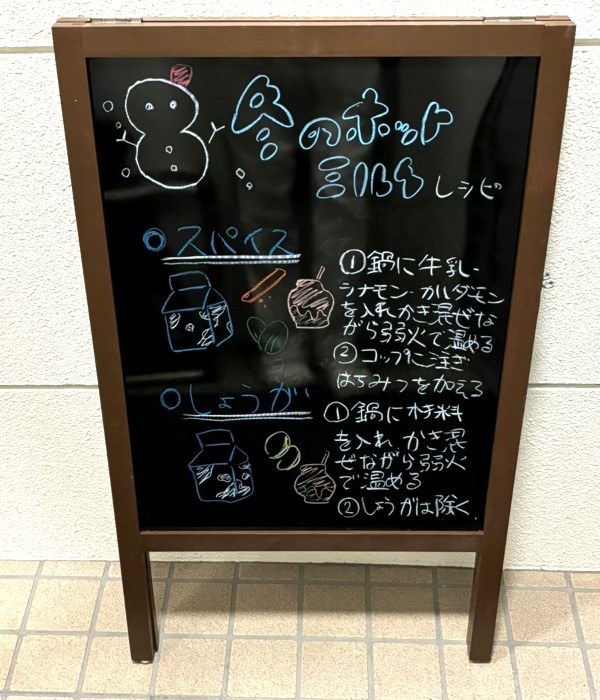 冬のホット
ミルク レシピ
スパイス
①鍋に牛乳・
シナモン・カルダモン
を入れかき混ぜな
がら弱火で温める
②コップに注ぎ
はちみつを加える
しょうが
①鍋に材料
を入れ かき混
ぜながら弱火
で温める
②しょうがは除く